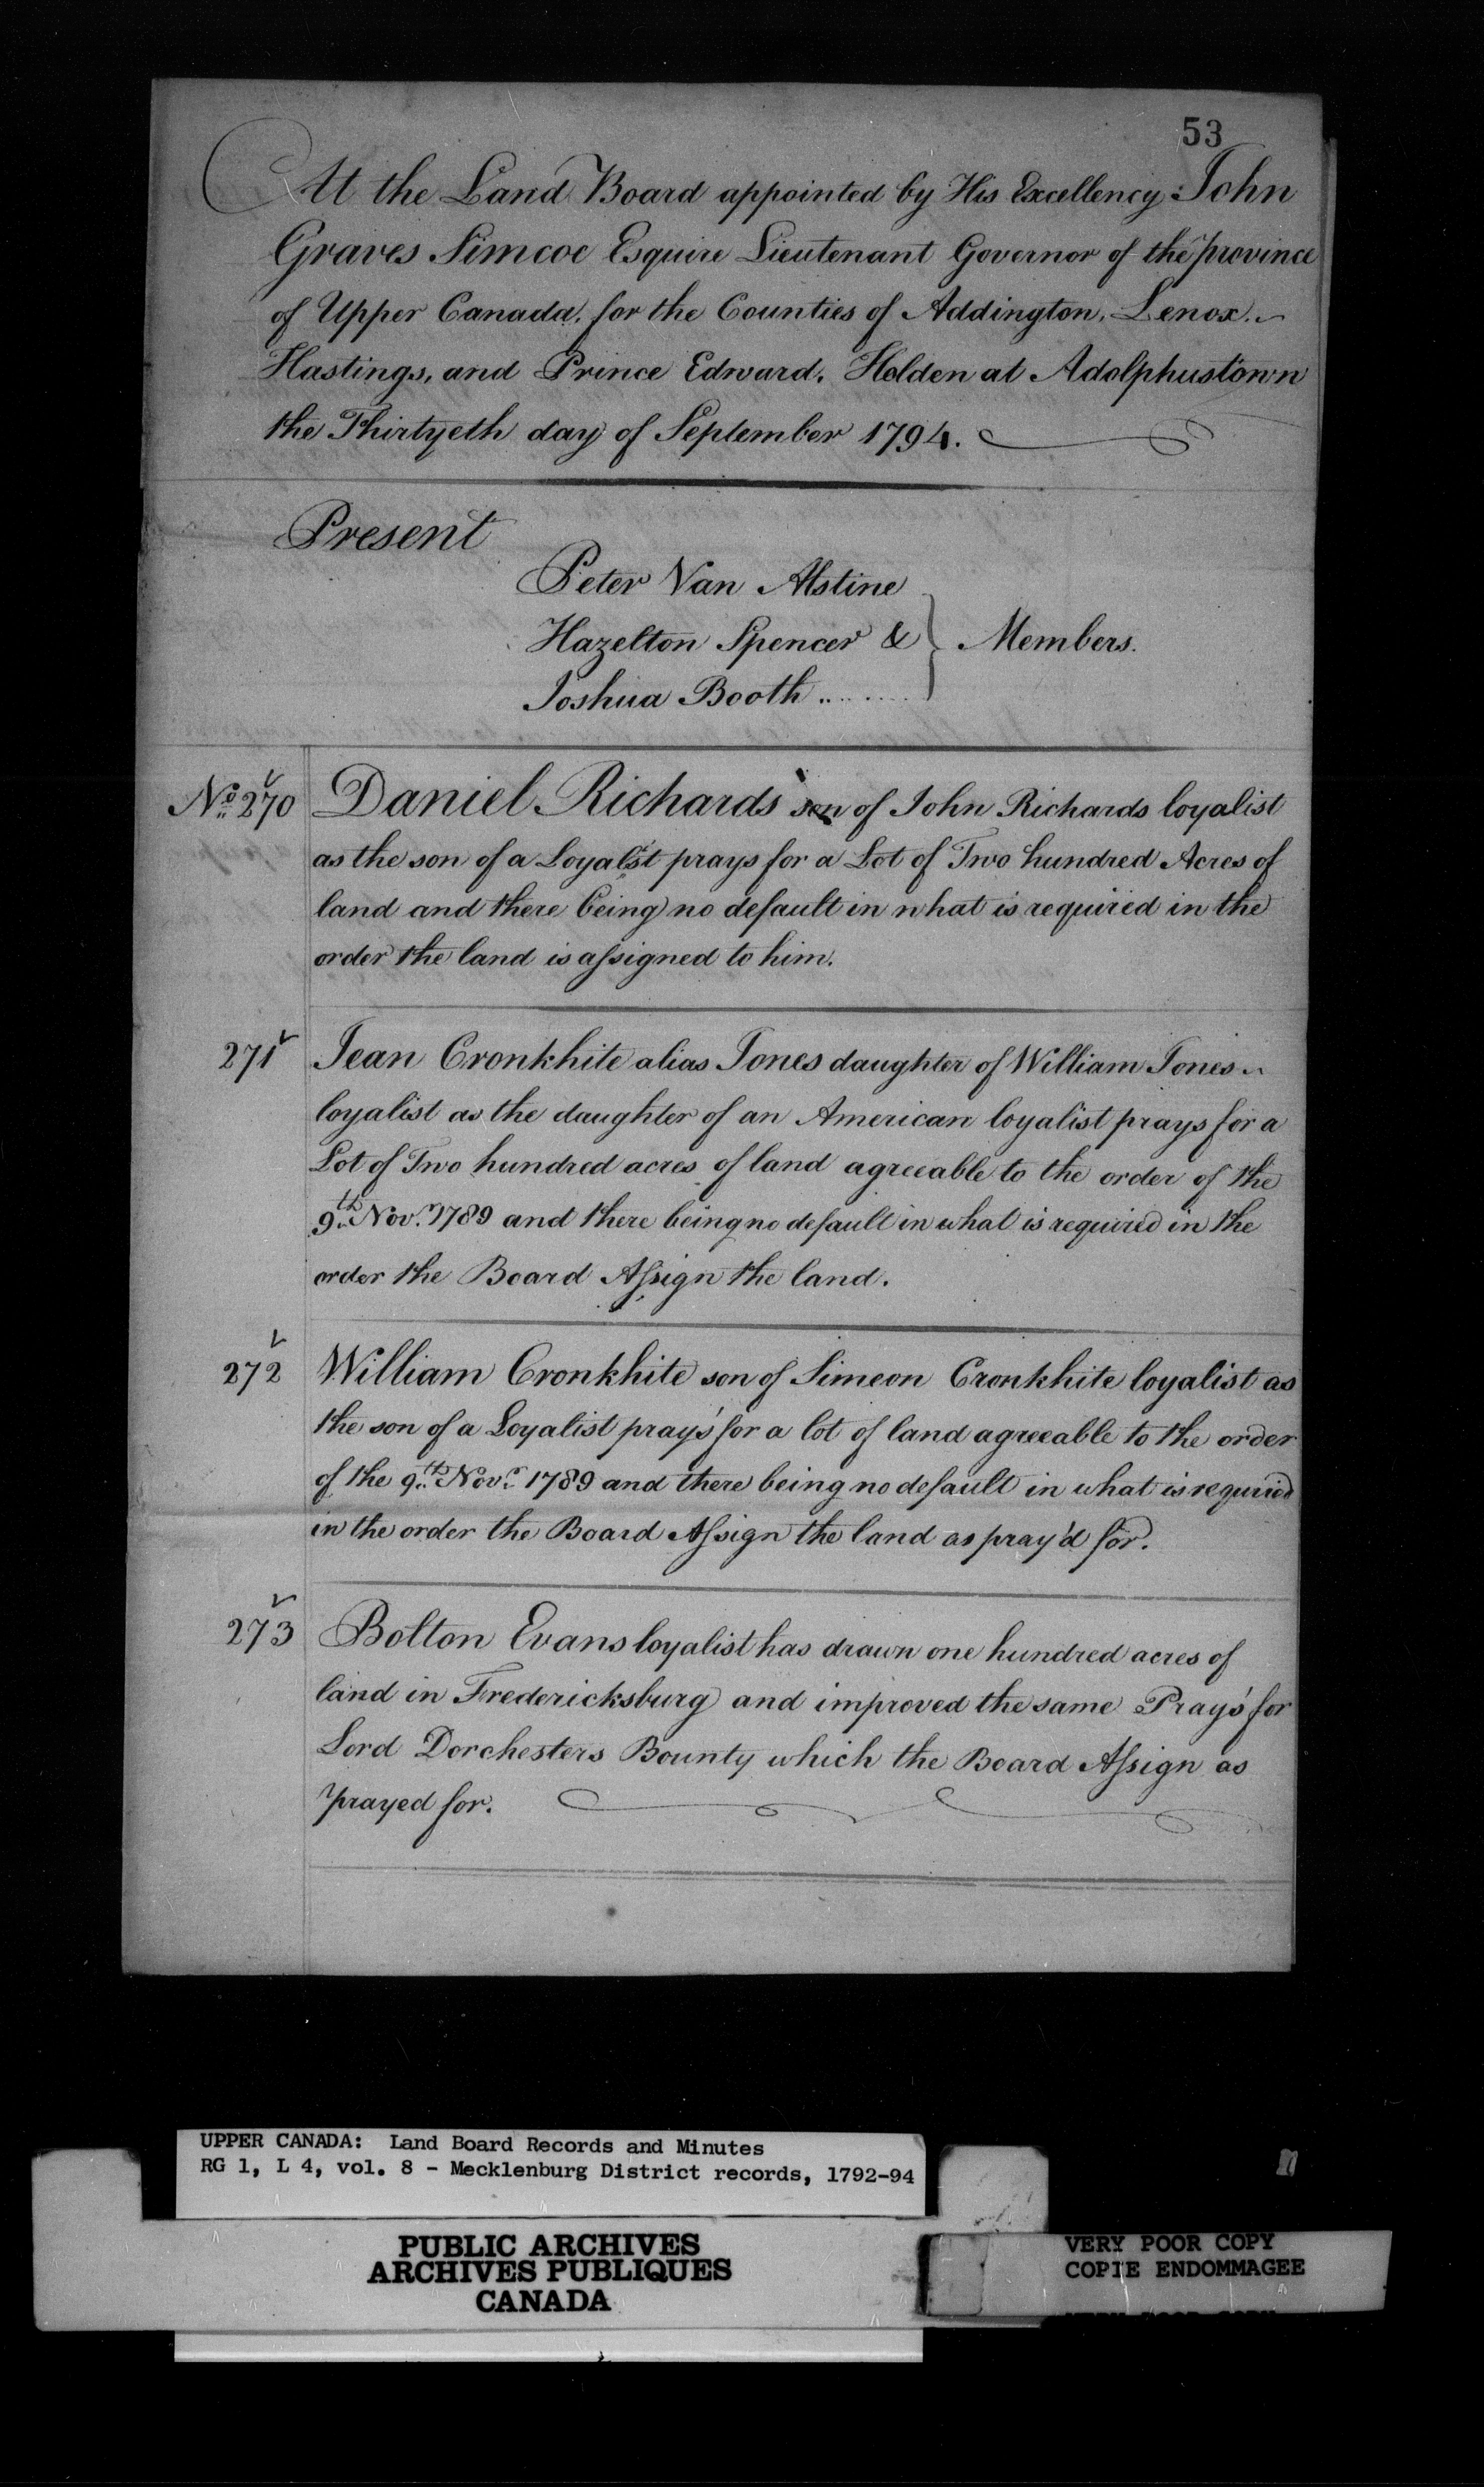 53
At the Land Board appointed by His Excellency John
Graves Simcoe Esquire Lieutenant Governor of the province
of Upper Canada, for the Counties of Addington, Lenox,
Hastings, and Prince Edward. Holden at Adolphustown
the Thirtyeth day of September 1794.
Present
Peter Van Alstine
Hazelton Spencer & } Members.
Joshua Booth ........
No 270 Daniel Richards son of John Richards loyalist
as the son of a Loyalst prays for a Lot of Two hundred Acres of
land and there being no default in what is required in the
order the land is assigned to him.
271 Jean Cronkhite alias Jones daughter of William Jones
loyalist as the daughter of an American loyalist prays for a
Lot of Two hundred acres of land agreeable to the order of the
9th Novr 1789 and there being no default in what is required in the
order the Board Assign the land.
272 William Cronkhite son of Simeon Cronkhite loyalist as
the son of a Loyalist pray's for a lot of land agreeable to the order
of the 9th Novr 1789 and there being no default in what is required
in the order the Board Assign the land as pray'd for.
273 Bolton Evans loyalist has drawn one hundred acres of
land in Fredericksburg and improved the same Pray's for
Lord Dorchesters Bounty which the Board Assign as
prayed for.
UPPER CANADA: Land Board Records and Minutes
RG 1, L 4, vol. 8 - Mecklenburg District records, 1792-94
PUBLIC ARCHIVES
ARCHIVES PUBLIQUES
CANADA
VERY POOR COPY
COPIE ENDOMMAGEE